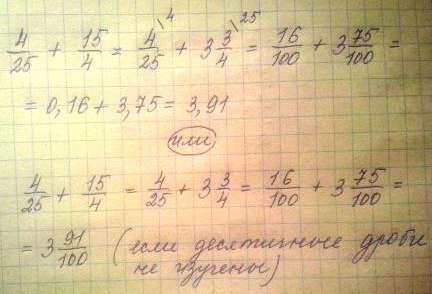 4/25 + 15/4 = 4/25 \4 + 3 3/4 \25 = 16/100 + 3 75/100 =
= 0,16 + 3,75 = 3,91
или
4/25 + 15/4 = 4/25 + 3 3/4 = 16/100 + 3 75/100 =
= 3 91/100 (если десятичные дроби
не изучены)